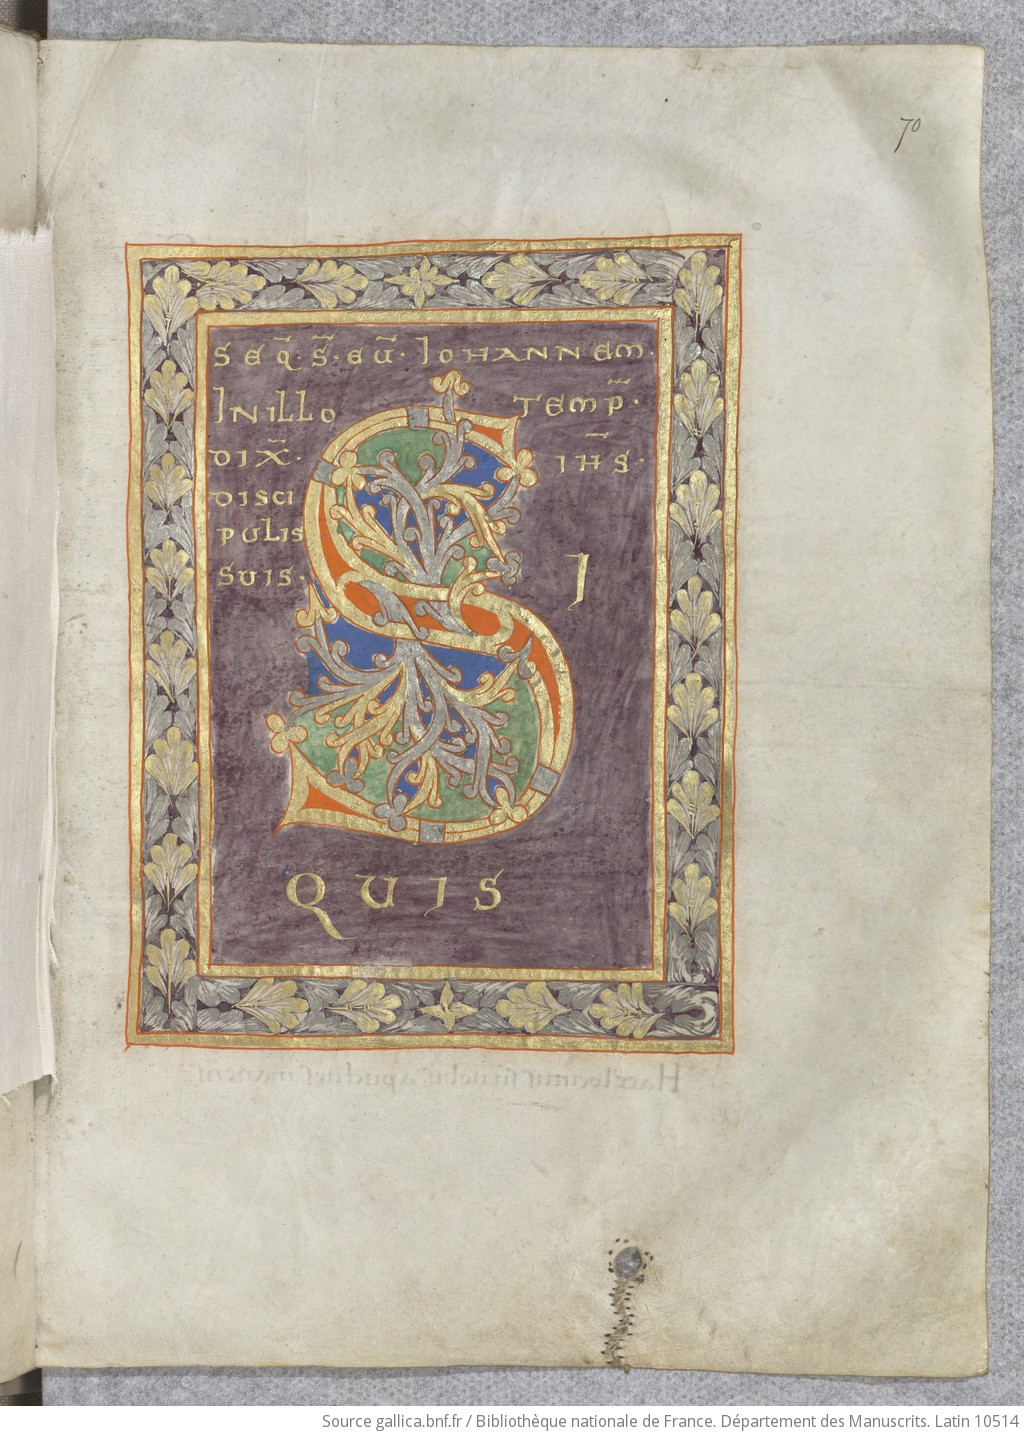 70
SEQ̄·S̄·EŪ· IOHANNEM·
INILLO TEMP̄·
DIX̄· IHS̄·
DISCI
PULIS
SUIS·
S I
QUIS
Source gallica.bnf.fr / Bibliothèque nationale de France. Département des Manuscrits. Latin 10514